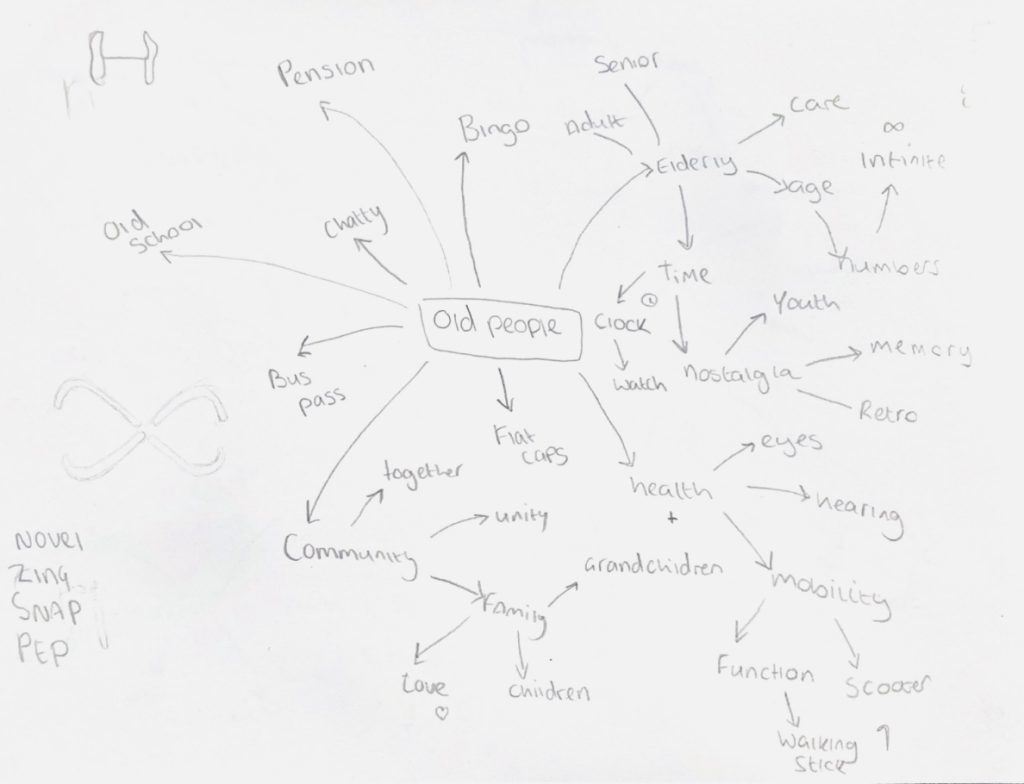 Pension
Senior
Bingo
Adult
Care
Elderly
∞
Infinite
age
Old
School
Chatty
numbers
Time
Old people
Clock
Youth
Watch
nostalgia
memory
Bus
pass
Retro
Flat
caps
eyes
together
health
+
hearing
unity
Community
grandchildren
mobility
family
NOVEL
ZING
SNAP
PEP
Love
♡
children
Function
Scooter
Walking
Stick